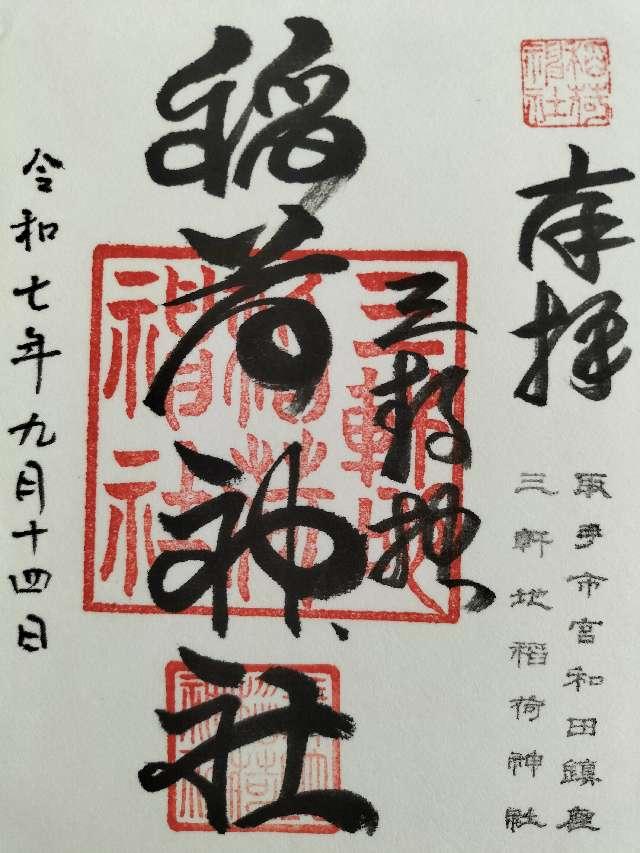 稲荷神社
奉拝
取手市宮和田鎮座
三軒地稲荷神社
三軒地
稲荷神社
三軒地
稲荷
神社
令和七年九月十四日